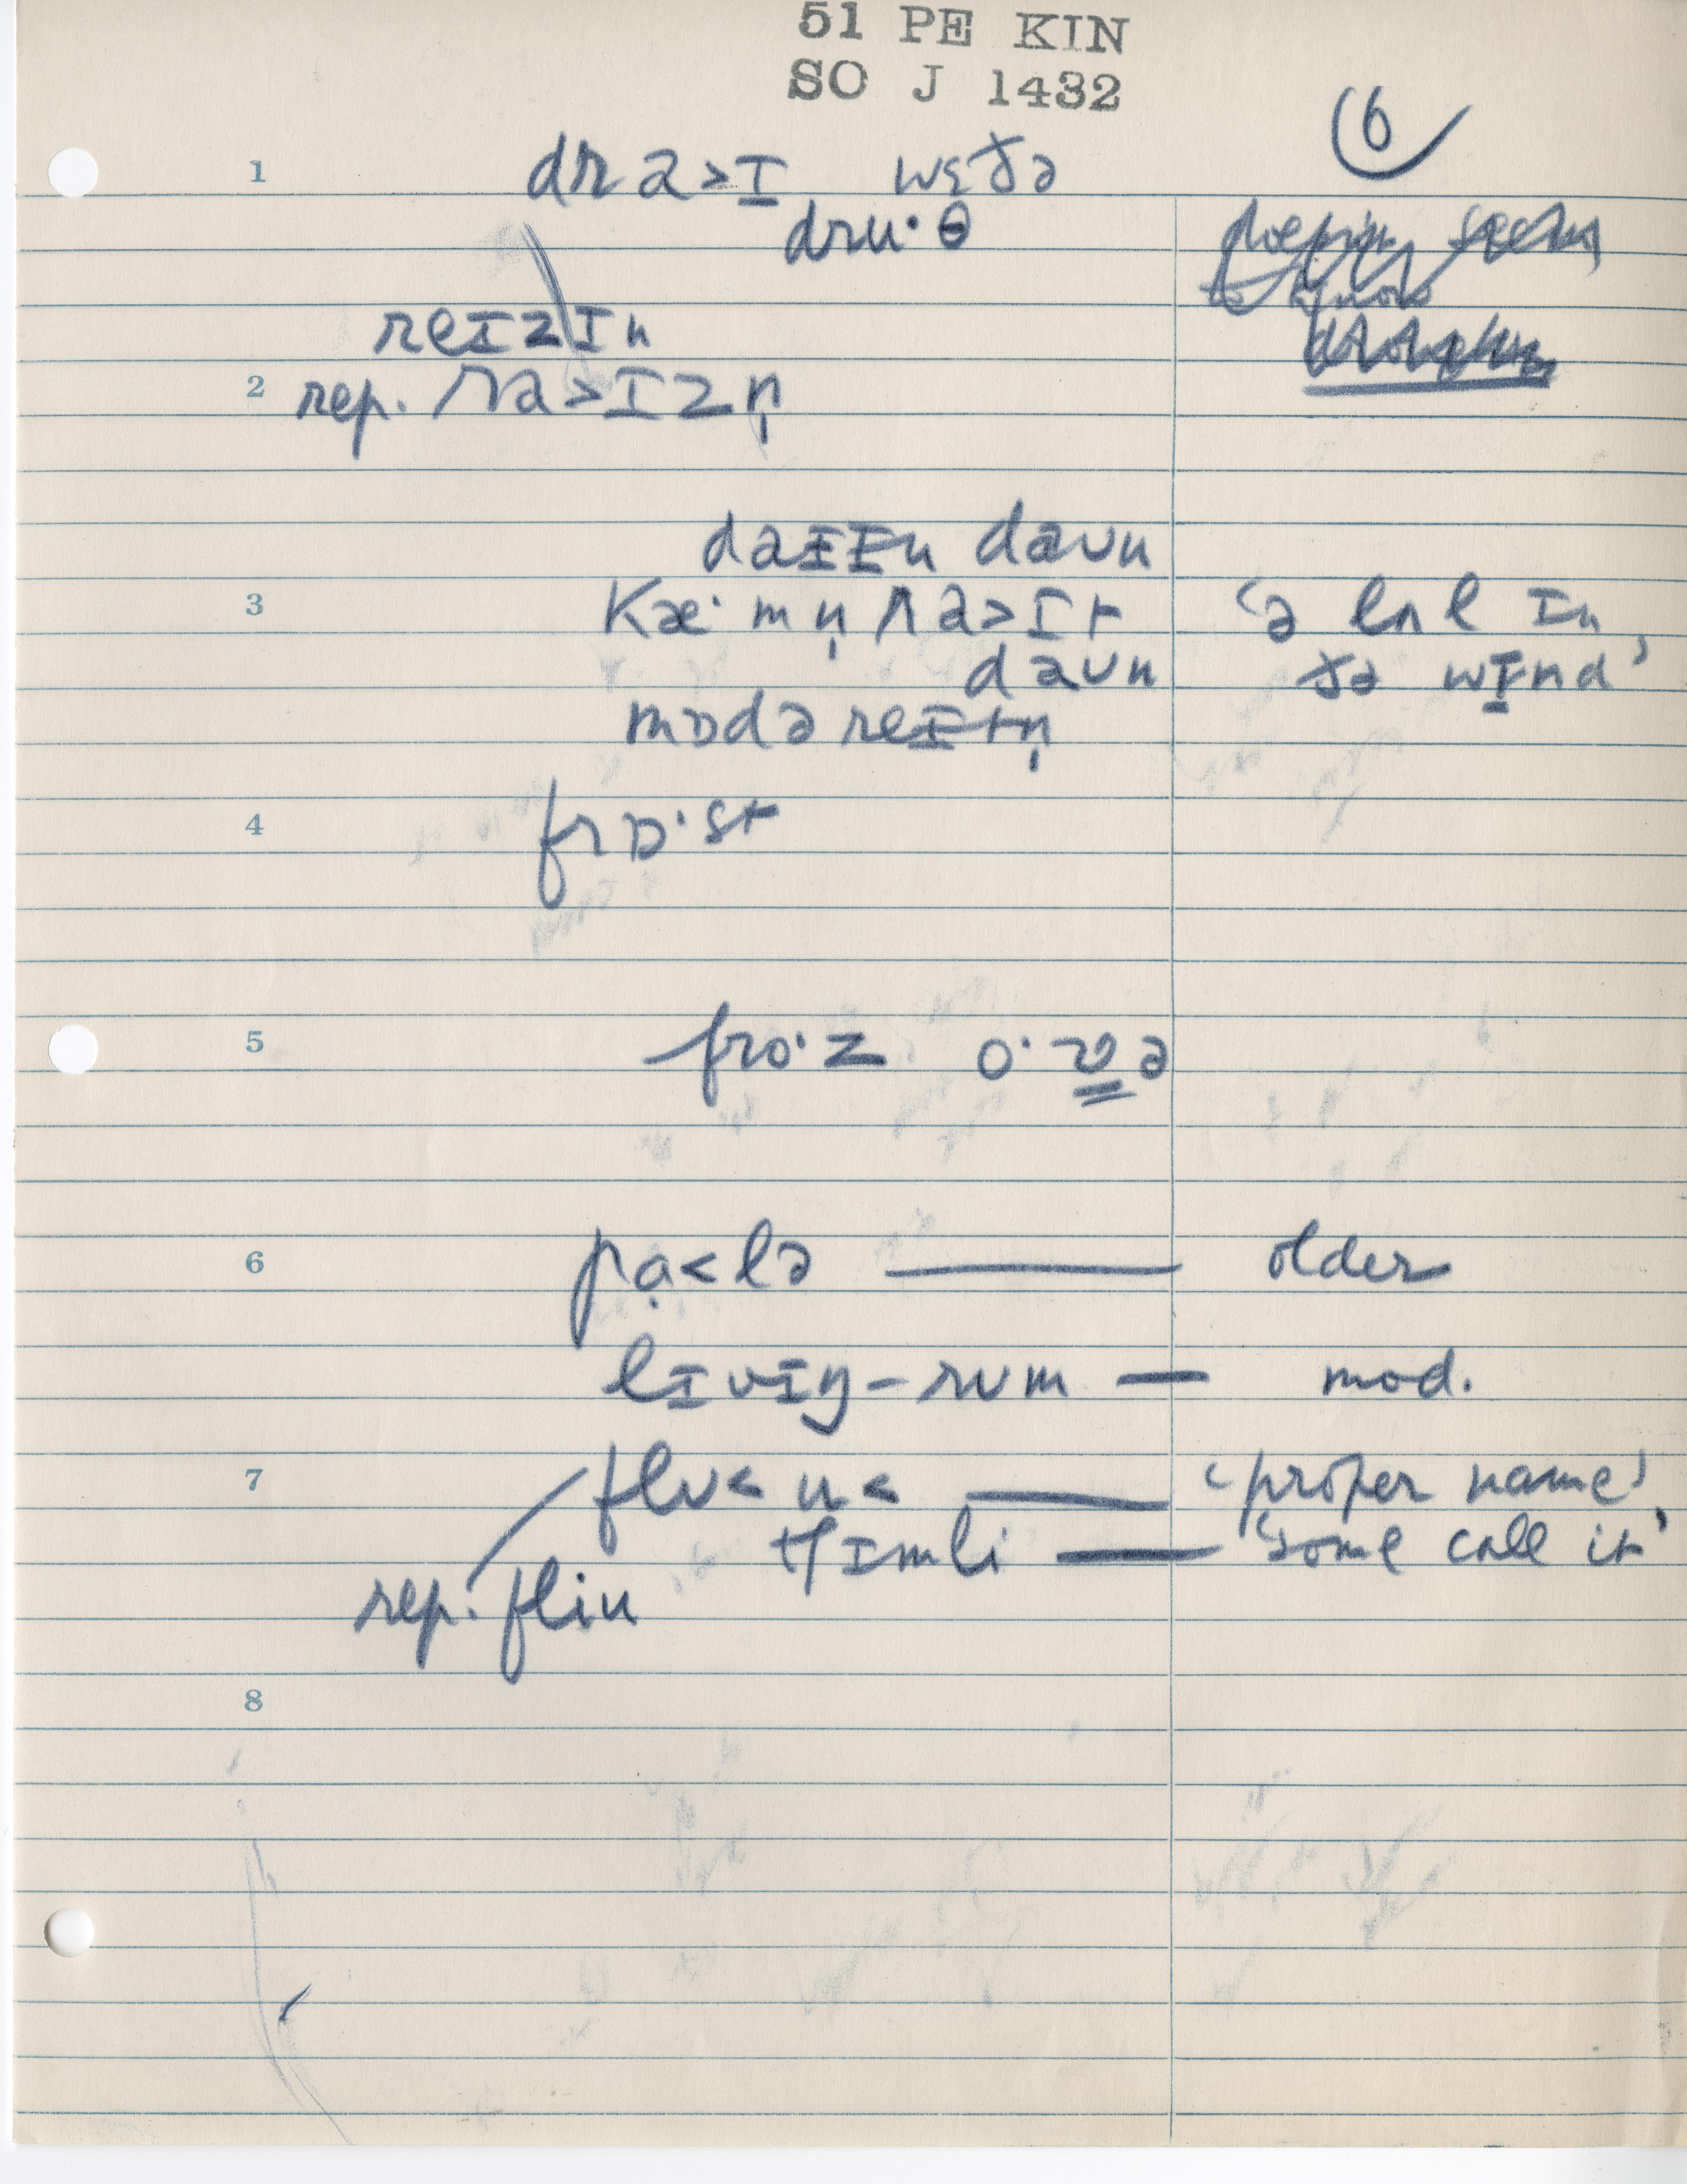 51 PE KIN
SO J 1432
6
1 dra>ɪ wɛðə
dru·θ
reɪzɪn
2 rep. ra>ɪzn̩
daɪɪn daʊn
3 kæ·mn̩ ra>ɪt 'ə lʌl ɪn
daʊn ðə wɪnd'
mɒdəreɪtn̩
4 frɒ·st
5 fro·z o·və
6 pạ<lə — older
lɪvɪŋ-rʊm — mod.
7 flʊ<u< — 'proper name'
tʃɪmli — 'some call it'
rep. fliu
8